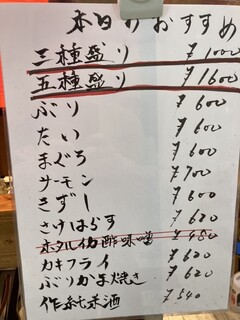 本日のおすすめ
三種盛り ¥1000
五種盛り ¥1600
ぶり ¥600
たい ¥600
まぐろ ¥700
サーモン ¥600
きずし ¥600
さけはらす ¥620
ホタルイカ酢味噌 ¥480
カキフライ ¥620
ぶりかま焼き ¥620
作純米酒 ¥540